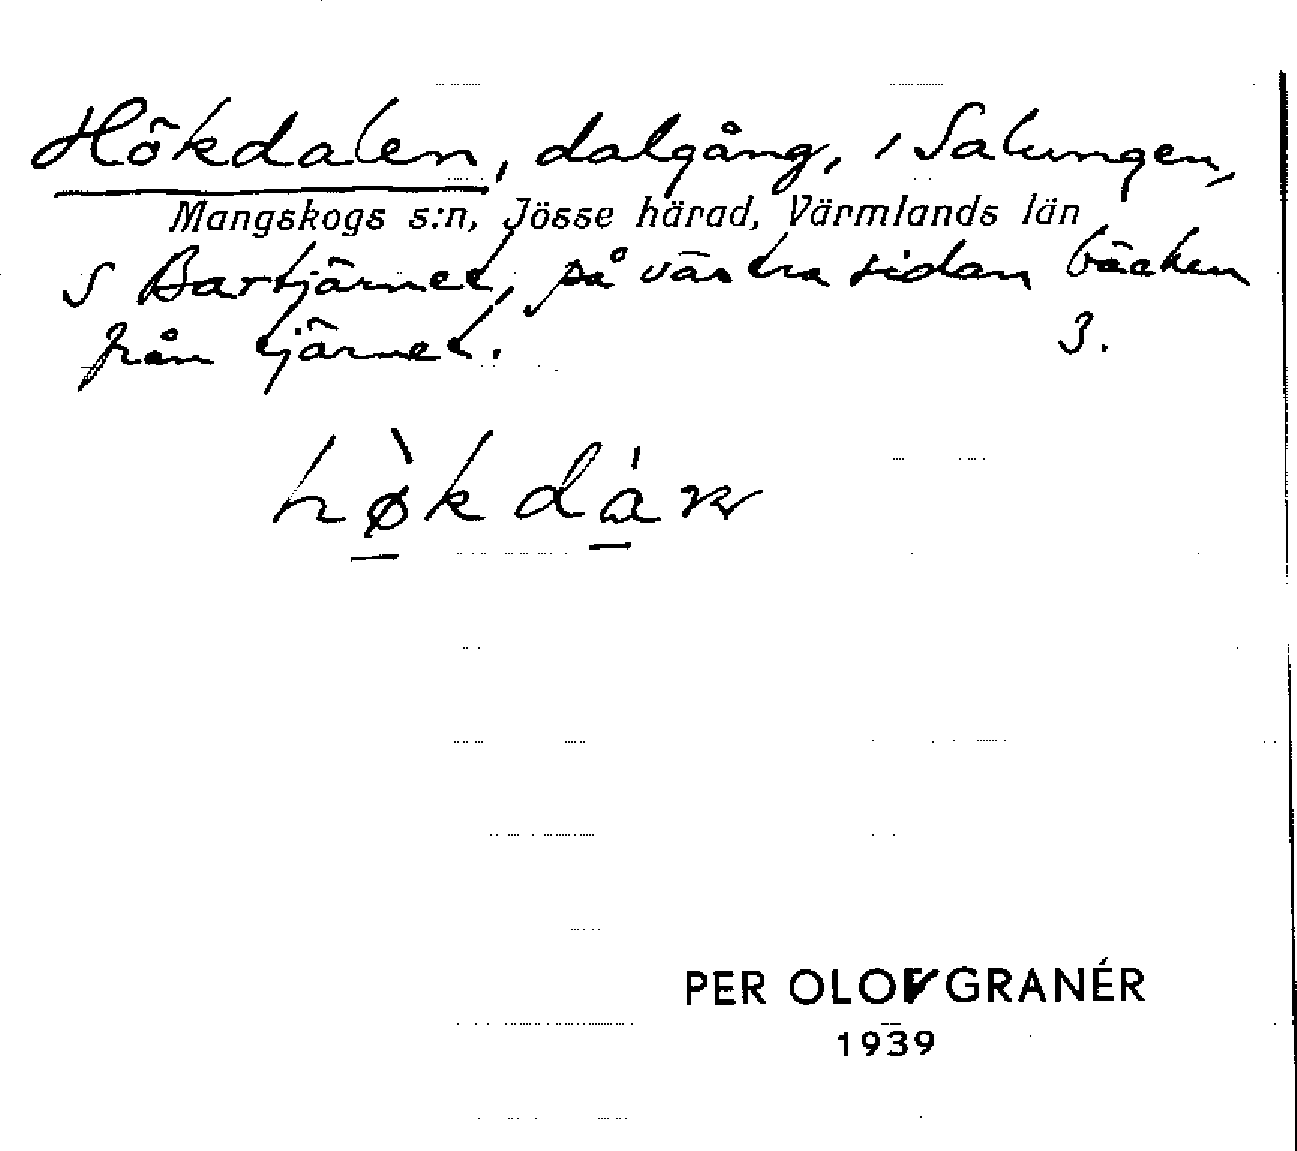 Hökdalen, dalgång, i Salungen,
Mangskogs s:n, Jösse härad, Värmlands län
S Bartjärnet, på västra sidan bäcken
från tjärnet. 3.
PER OLOV GRANÉR
1939